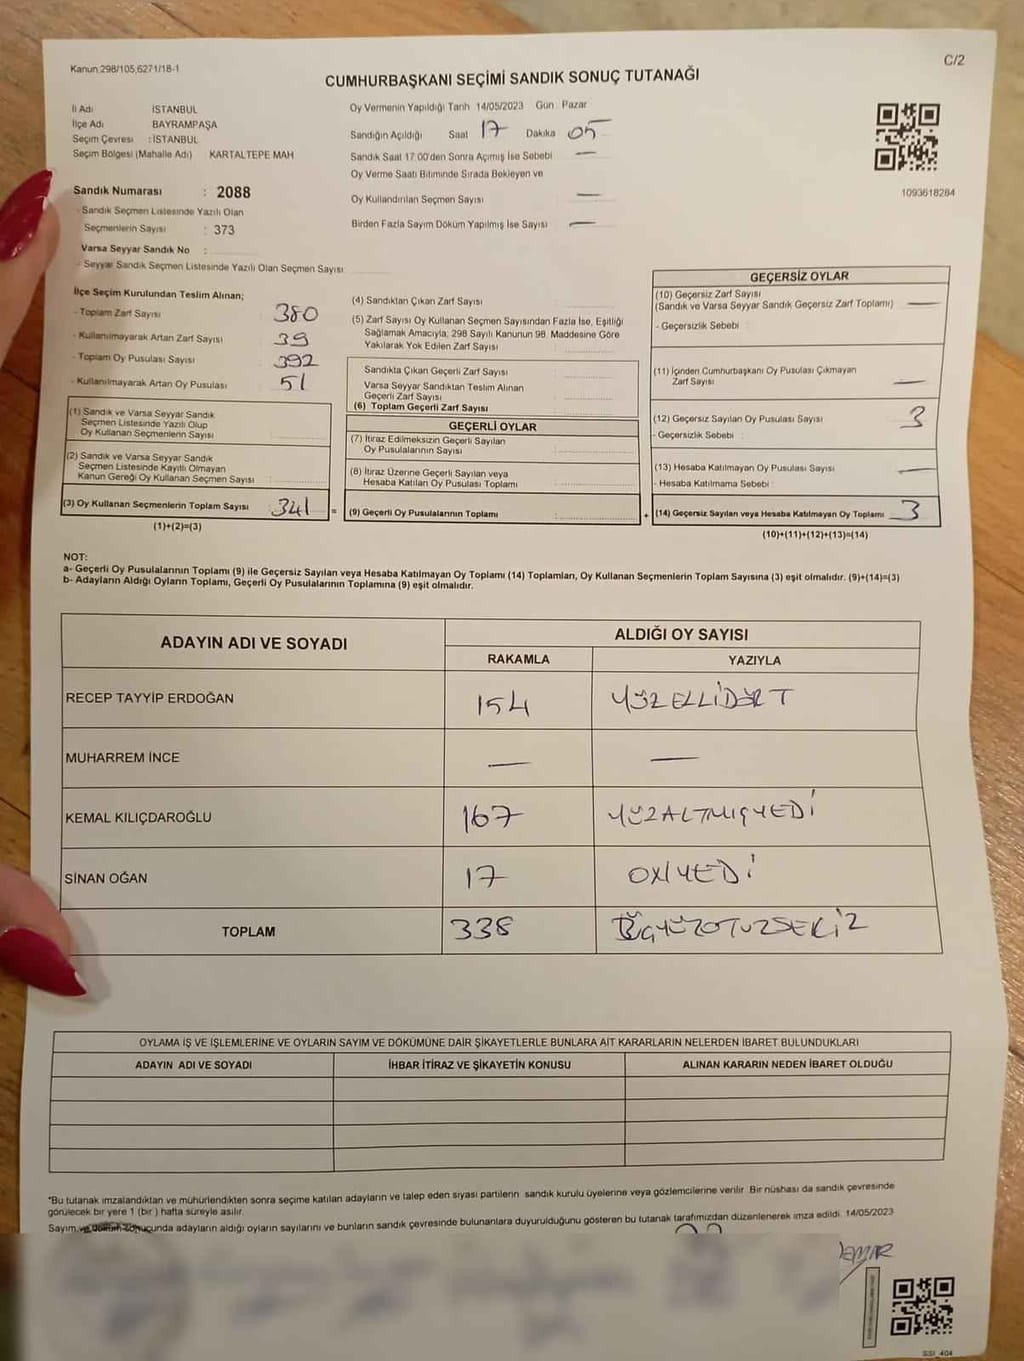 Kanun 298/105,6271/18-1
C/2
CUMHURBAŞKANI SEÇİMİ SANDIK SONUÇ TUTANAĞI
İl Adı İSTANBUL
İlçe Adı BAYRAMPAŞA
Seçim Çevresi : İSTANBUL
Seçim Bölgesi (Mahalle Adı) KARTALTEPE MAH
Sandık Numarası : 2088
- Sandık Seçmen Listesinde Yazılı Olan
Seçmenlerin Sayısı : 373
Varsa Seyyar Sandık No :
- Seyyar Sandık Seçmen Listesinde Yazılı Olan Seçmen Sayısı:
Oy Vermenin Yapıldığı Tarih 14/05/2023 Gün : Pazar
Sandığın Açıldığı Saat 17 Dakika 05
Sandık Saat 17:00'den Sonra Açılmış İse Sebebi —
Oy Verme Saati Bitiminde Sırada Bekleyen ve
Oy Kullandırılan Seçmen Sayısı —
Birden Fazla Sayım Döküm Yapılmış İse Sayısı —
1093618284
İlçe Seçim Kurulundan Teslim Alınan;
- Toplam Zarf Sayısı 380
- Kullanılmayarak Artan Zarf Sayısı 39
- Toplam Oy Pusulası Sayısı 392
- Kullanılmayarak Artan Oy Pusulası 51
(1) Sandık ve Varsa Seyyar Sandık
Seçmen Listesinde Yazılı Olup
Oy Kullanan Seçmenlerin Sayısı
(2) Sandık ve Varsa Seyyar Sandık
Seçmen Listesinde Kayıtlı Olmayan
Kanun Gereği Oy Kullanan Seçmen Sayısı
(3) Oy Kullanan Seçmenlerin Toplam Sayısı 341 =
(1)+(2)=(3)
(4) Sandıktan Çıkan Zarf Sayısı
(5) Zarf Sayısı Oy Kullanan Seçmen Sayısından Fazla İse, Eşitliği
Sağlamak Amacıyla, 298 Sayılı Kanunun 98. Maddesine Göre
Yakılarak Yok Edilen Zarf Sayısı
Sandıkta Çıkan Geçerli Zarf Sayısı
Varsa Seyyar Sandıktan Teslim Alınan
Geçerli Zarf Sayısı
(6) Toplam Geçerli Zarf Sayısı
GEÇERLİ OYLAR
(7) İtiraz Edilmeksizin Geçerli Sayılan
Oy Pusulalarının Sayısı
(8) İtiraz Üzerine Geçerli Sayılan veya
Hesaba Katılan Oy Pusulası Toplamı
(9) Geçerli Oy Pusulalarının Toplamı +
GEÇERSİZ OYLAR
(10) Geçersiz Zarf Sayısı
(Sandık ve Varsa Seyyar Sandık Geçersiz Zarf Toplamı) —
- Geçersizlik Sebebi :
(11) İçinden Cumhurbaşkanı Oy Pusulası Çıkmayan
Zarf Sayısı —
(12) Geçersiz Sayılan Oy Pusulası Sayısı 3
- Geçersizlik Sebebi :
(13) Hesaba Katılmayan Oy Pusulası Sayısı —
- Hesaba Katılmama Sebebi :
(14) Geçersiz Sayılan veya Hesaba Katılmayan Oy Toplamı 3
(10)+(11)+(12)+(13)=(14)
NOT:
a- Geçerli Oy Pusulalarının Toplamı (9) ile Geçersiz Sayılan veya Hesaba Katılmayan Oy Toplamı (14) Toplamları, Oy Kullanan Seçmenlerin Toplam Sayısına (3) eşit olmalıdır. (9)+(14)=(3)
b- Adayların Aldığı Oyların Toplamı, Geçerli Oy Pusulalarının Toplamına (9) eşit olmalıdır.
ADAYIN ADI VE SOYADI ALDIĞI OY SAYISI
RAKAMLA YAZIYLA
RECEP TAYYİP ERDOĞAN 154 YÜZELLİDÖRT
MUHARREM İNCE — —
KEMAL KILIÇDAROĞLU 167 YÜZALTMIŞYEDİ
SİNAN OĞAN 17 ONYEDİ
TOPLAM 338 ÜÇYÜZOTUZSEKİZ
OYLAMA İŞ VE İŞLEMLERİNE VE OYLARIN SAYIM VE DÖKÜMÜNE DAİR ŞİKAYETLERLE BUNLARA AİT KARARLARIN NELERDEN İBARET BULUNDUKLARI
ADAYIN ADI VE SOYADI İHBAR İTİRAZ VE ŞİKAYETİN KONUSU ALINAN KARARIN NEDEN İBARET OLDUĞU
*Bu tutanak imzalandıktan ve mühürlendikten sonra seçime katılan adayların ve talep eden siyasi partilerin sandık kurulu üyelerine veya gözlemcilerine verilir. Bir nüshası da sandık çevresinde
görülecek bir yere 1 (bir) hafta süreyle asılır.
Sayım ve döküm sonucunda adayların aldığı oyların sayılarını ve bunların sandık çevresinde bulunanlara duyurulduğunu gösteren bu tutanak tarafımızdan düzenlenerek imza edildi. 14/05/2023
SSI_404